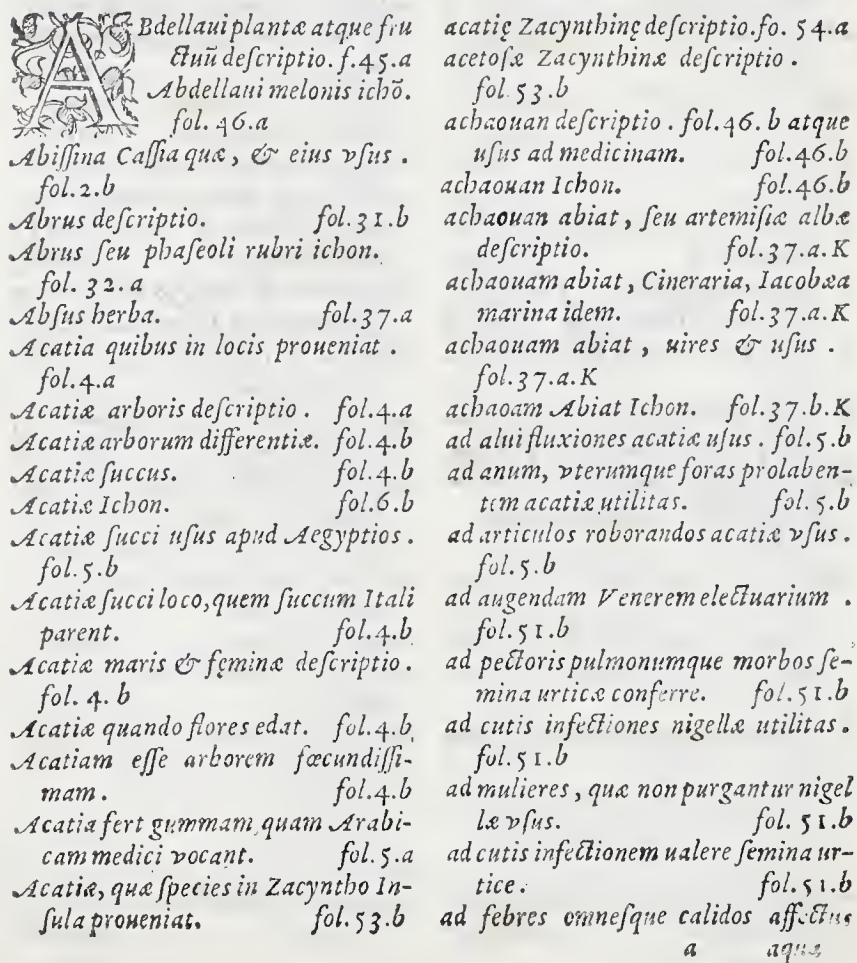 ABdellaui plantæ atque fru
ctuũ deſcriptio. f.45.a
Abdellaui melonis ichõ.
fol. 46.a
Abiſſina Caſſia quæ, & eius vſus .
fol.2.b
Abrus deſcriptio. fol.31.b
Abrus ſeu phaſeoli rubri ichon.
fol. 32. a
Abſus herba. fol.37.a
Acatia quibus in locis proueniat .
fol.4.a
Acatiæ arboris deſcriptio . fol.4.a
Acatiæ arborum differentiæ. fol.4.b
Acatiæ ſuccus. fol.4.b
Acatiæ Ichon. fol.6.b
Acatiæ ſucci uſus apud Aegyptios .
fol.5.b
Acatiæ ſucci loco, quem ſuccum Itali
parent. fol.4.b
Acatiæ maris & fęminæ deſcriptio.
fol. 4. b
Acatiæ quando flores edat. fol.4.b
Acatiam eſſe arborem fœcundiſſi-
mam . fol.4.b
Acatia fert gummam, quam Arabi-
cam medici vocant. fol.5.a
Acatiæ, quæ ſpecies in Zacyntho In-
ſula proueniat. fol.53.b
acatię Zacynthinę deſcriptio.fo. 54.a
acetoſæ Zacynthinæ deſcriptio .
fol.53.b
achaouan deſcriptio . fol.46. b atque
uſus ad medicinam. fol.46.b
achaouan Ichon. fol.46.b
achaouan abiat, ſeu artemiſiæ albæ
deſcriptio. fol.37.a.K
achaouam abiat, Cineraria, Iacobæa
marina idem. fol.37.a.K
achaouam abiat , uires & uſus .
fol.37.a.K
achaoam Abiat Ichon. fol.37.b.K
ad alui fluxiones acatiæ uſus . fol.5.b
ad anum, vterumque foras prolaben-
tem acatiæ utilitas. fol.5.b
ad articulos roborandos acatiæ vſus .
fol.5.b
ad augendam Venerem electuarium .
fol.51.b
ad pectoris pulmonumque morbos ſe-
mina urticæ conferre. fol.51.b
ad cutis infectiones nigellæ utilitas .
fol.51.b
ad mulieres , quæ non purgantur nigel
læ vſus. fol. 51.b
ad cutis infectionem ualere ſemina ur-
tice. fol.51.b
ad febres omneſque calidos affectus
a aquæ